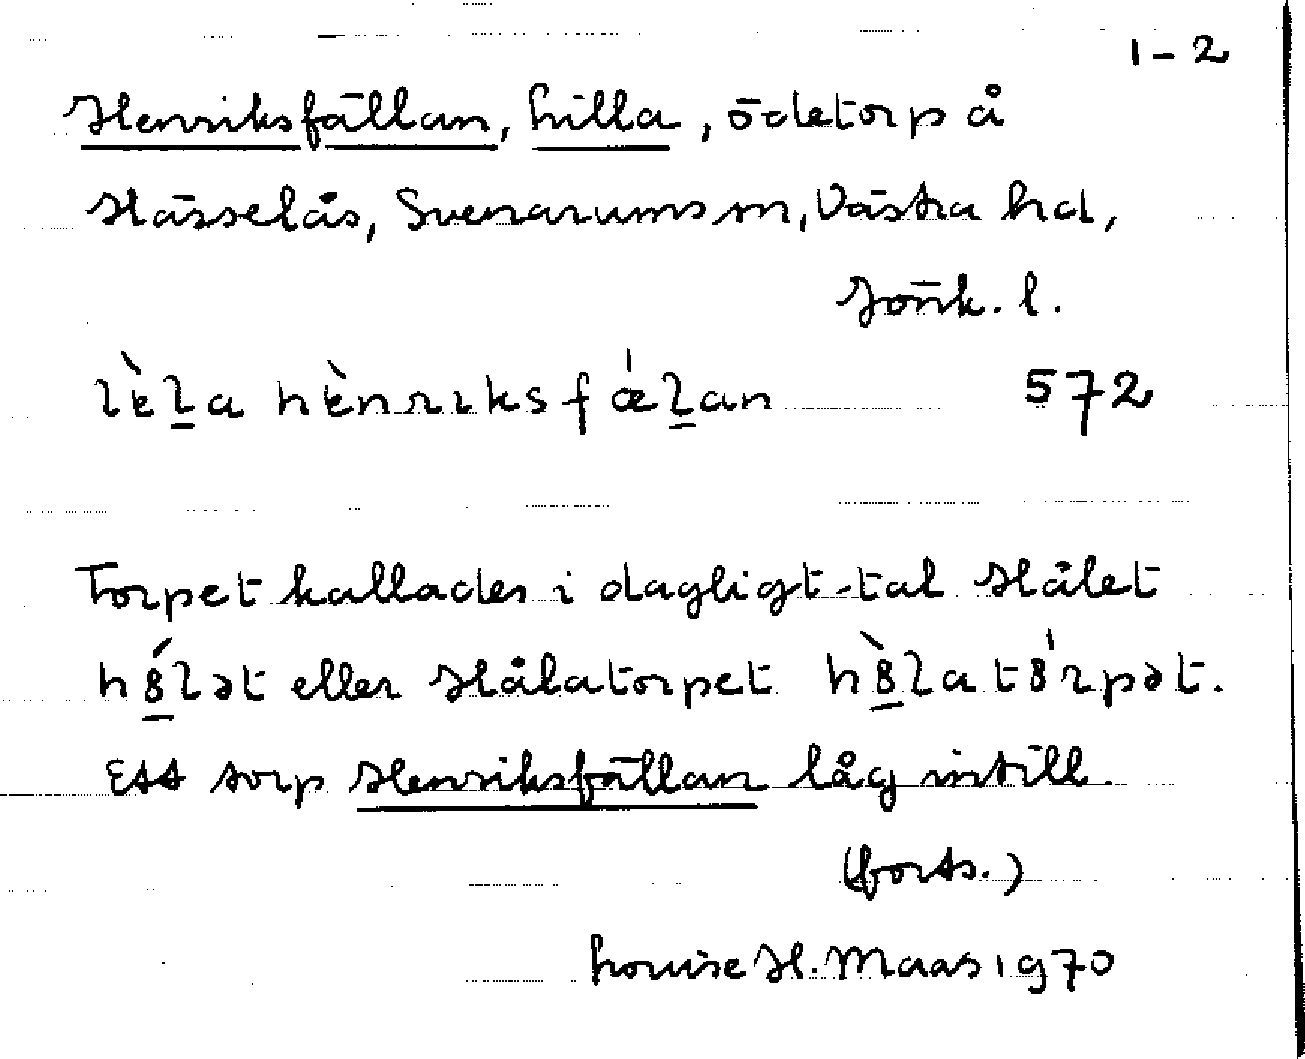 1-2
Henriksfällan, Lilla, ödetorp å
Hässelås, Svenarums sn, Västra hd,
Jönk. l.
lὲl̠a hὲnrιksfæ̍l̠an 572
Torpet kallades i dagligt-tal Hålet
hȣ̠́lət eller Hålatorpet hȣ̠̀latȣ̍rpət.
Ett torp Henriksfällan låg intill.
(forts.)
Louise H. Maas 1970